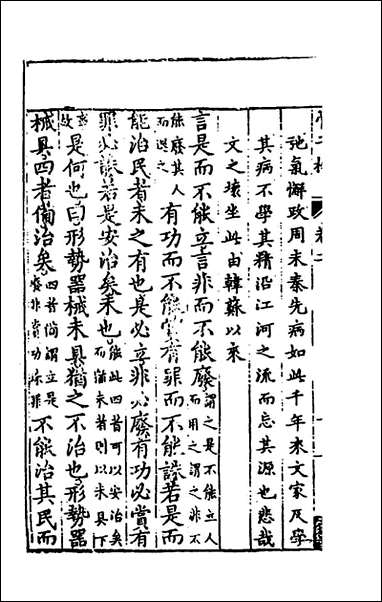 弛氣懈政周末秦先病如此千年來文家反學
其病不學其精沿江河之流而忘其源也悲哉
文之壞坐此由韓蘇以來
言是而不能立言非而不能廢謂之是不能立人而用之謂之非不
能廢其人而退之有功而不能賞有罪而不能誅若是而
能治民者未之有也是必立非必廢有功必賞有
罪必誅若是安治矣未也能此四者可以安治矣而猶未者則以未具下
故是何也曰形勢器械未具猶之不治也形勢器
械具四者備治矣四者備謂立是廢非賞功誅罪不能治其民而